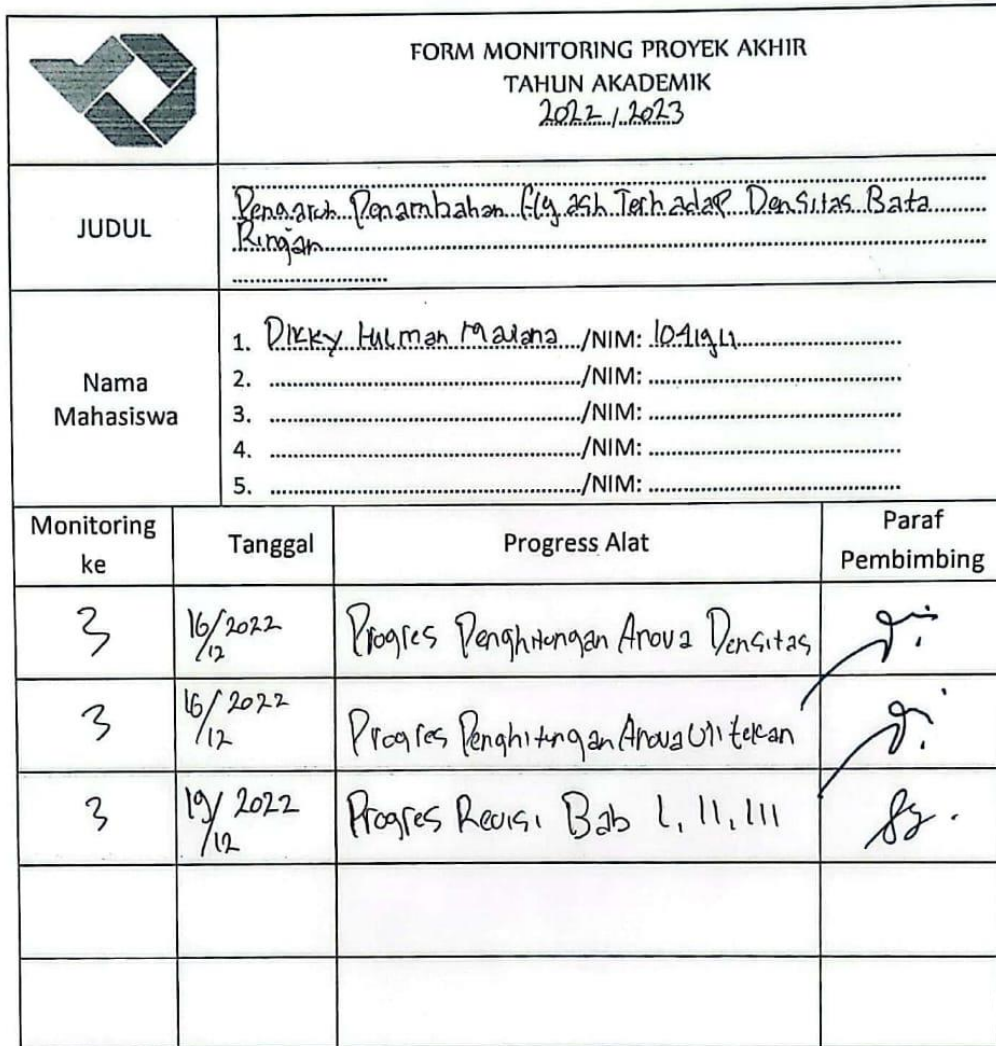 FORM MONITORING PROYEK AKHIR
TAHUN AKADEMIK
2022/2023
JUDUL
Pengaruh Penambahan Fly ash Terhadap Densitas Bata
Ringan
Nama
Mahasiswa
1. Dikky Hukman Malana /NIM:
2. /NIM:
3. /NIM:
4. /NIM:
5. /NIM:
Monitoring
ke
Tanggal
Progress Alat
Paraf
Pembimbing
3 16/12 2022 Progres Penghitungan Anova Densitas
3 16/12 2022 Progres Penghitungan Anova Uji tekan
3 19/12 2022 Progres Revisi Bab I, II, III